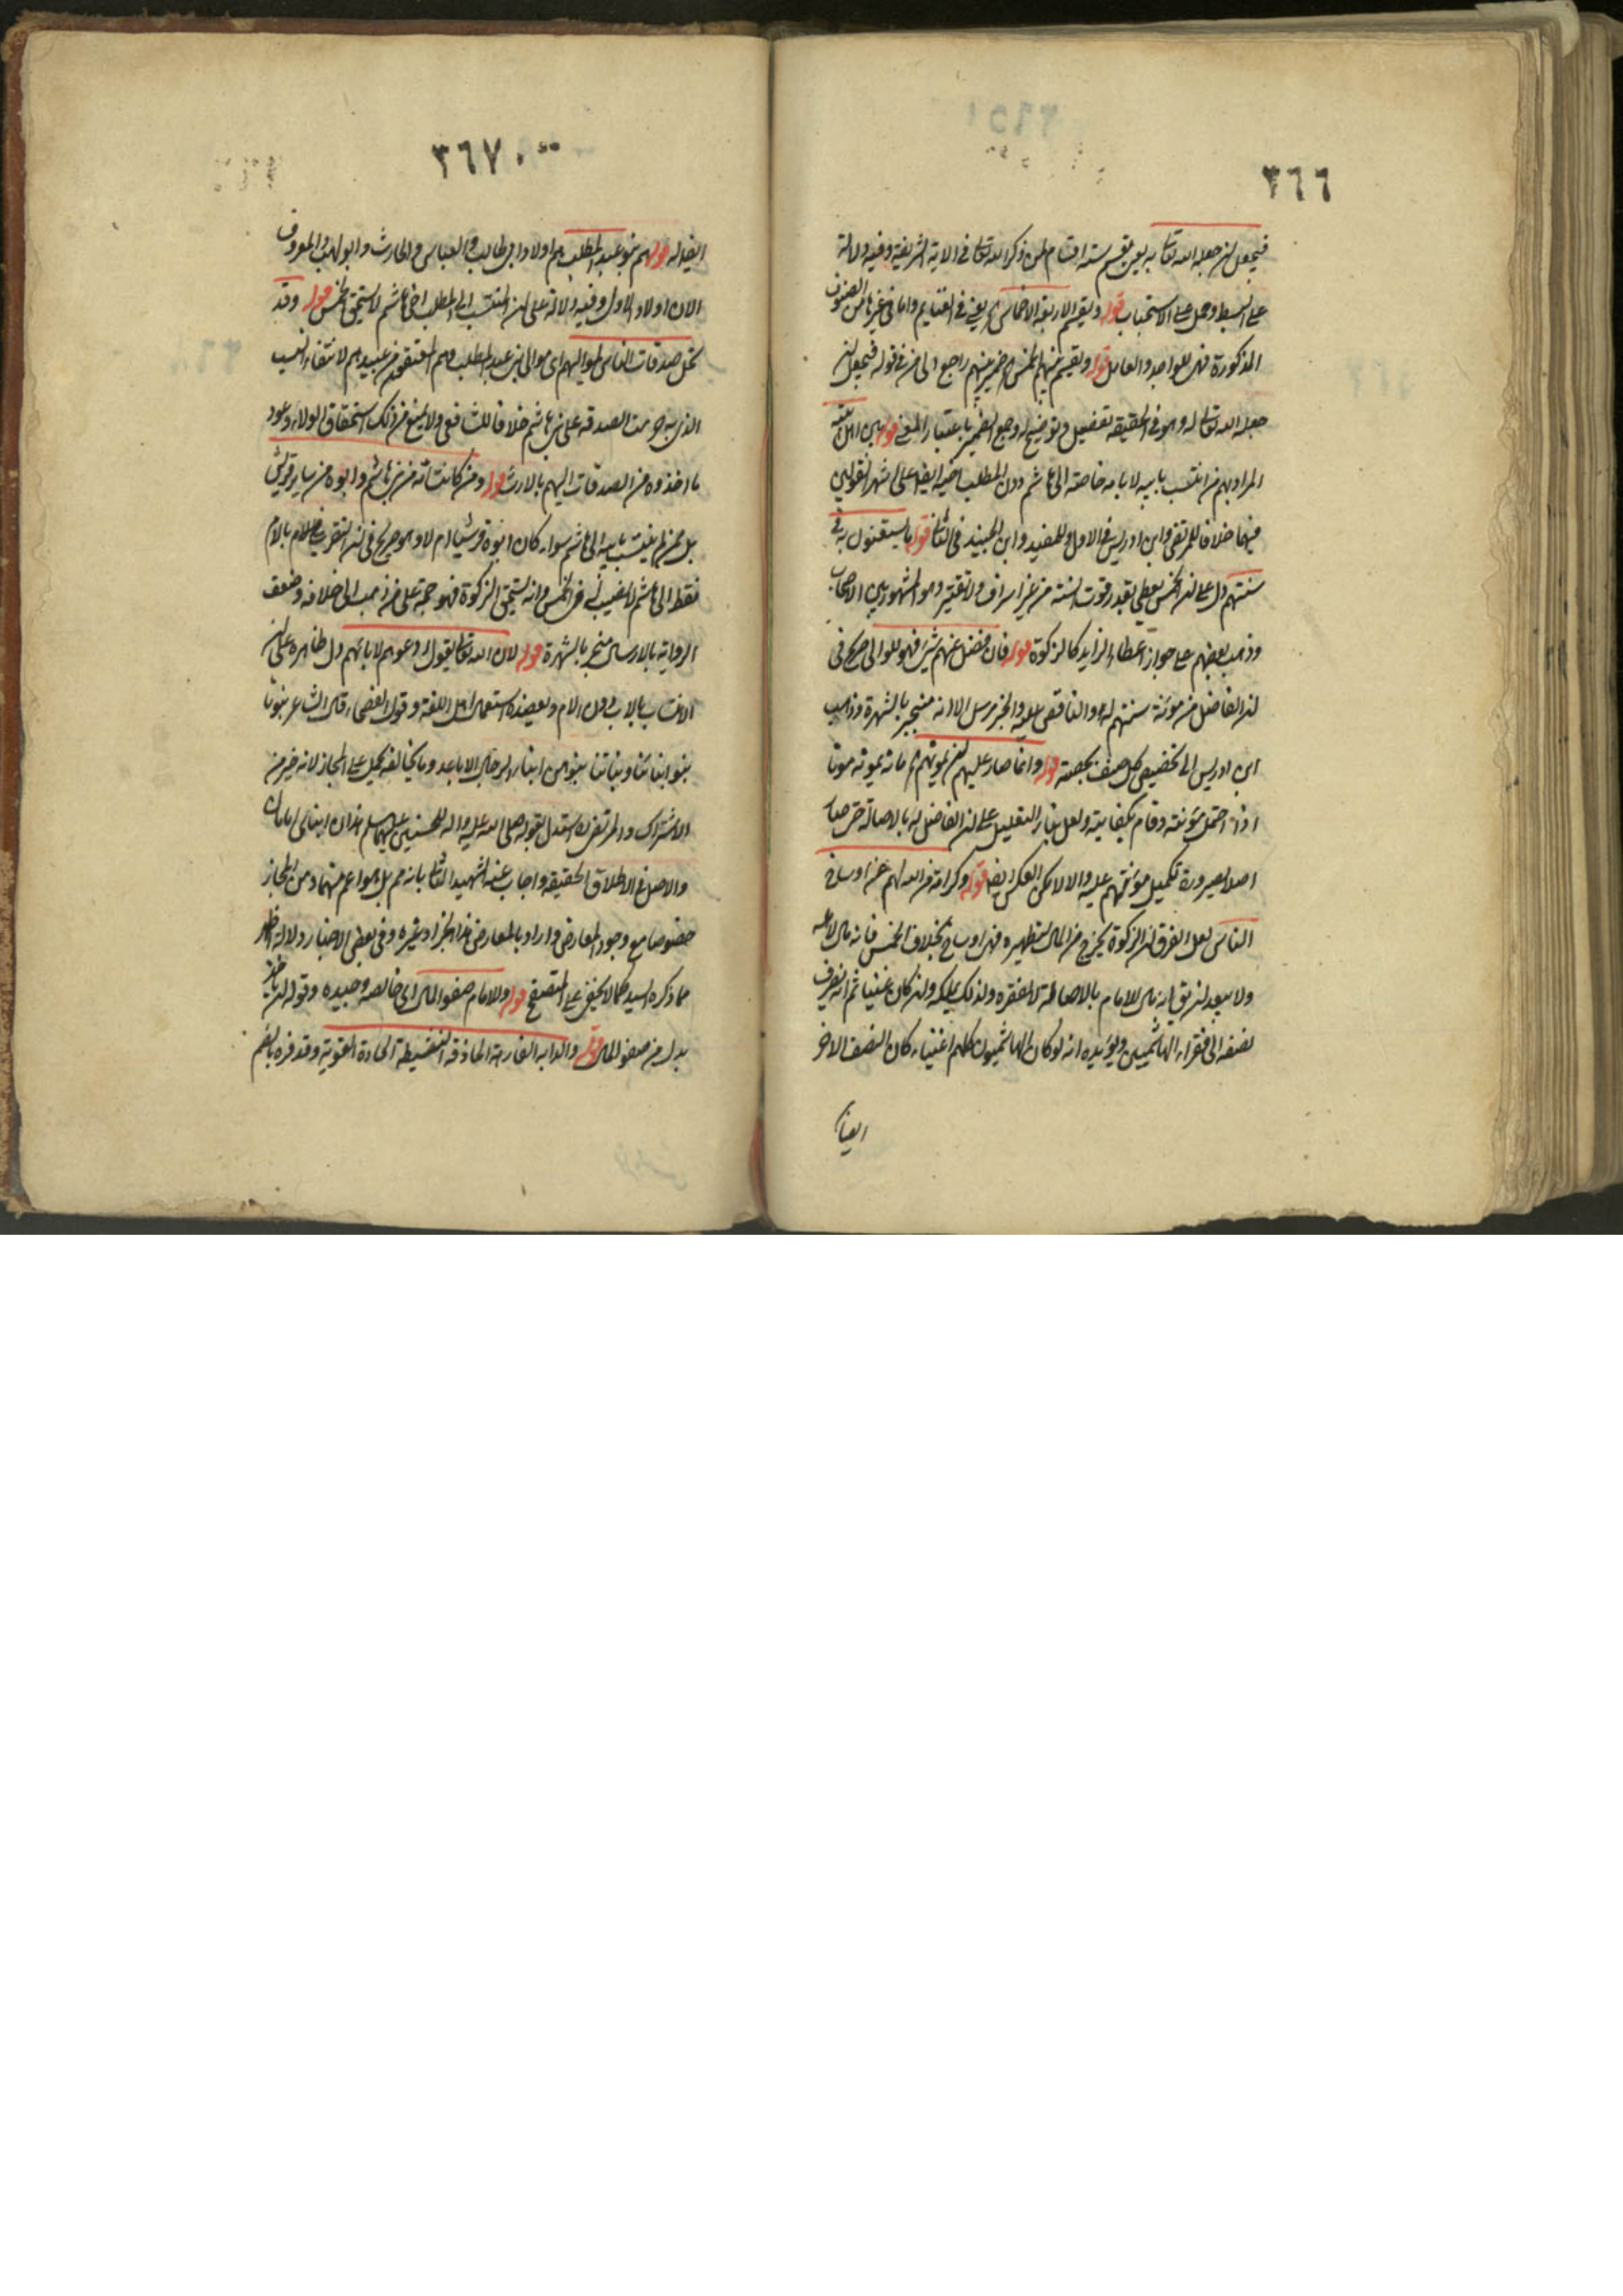 ٣٦٦
فيجعل لمن جعله الله تعالى به يعني يقسم ستة اقسام على من ذكر الله تعالى في الاية الشريفة وفيه دلالة
على البسط وحمل على الاستحباب قوله ويقسم الاربعة الاخماس اه يعني في الغنايم واما في غيرها من الصنوف
المذكورة فهي للواجد والعامل قوله ويقسم بينهم الخمس اه ضمير بينهم راجع الى من في قوله فيجعل لمن
جعله الله تعالى له وهو في الحقيقة تفصيل وتوضيح له وجمع الضمير باعتبار المعنى قوله بين اهل بيته
المراد بهم من انتسب بابيه لا بامه خاصة الى هاشم دون المطلب اخيه ايضا على اشهر القولين
فيهما خلافا للمرتضى وابن ادريس في الاول وللمفيد وابن الجنيد في الثاني قوله ما يستغنون به في
سنتهم دل على ان الخمس يعطى بقدر قوت السنة من غير اسراف ولا تقتير وهو المشهور بين الاصحاب
وذهب بعضهم على جواز اعطاء الزايد كالزكوة قوله فان فضل عنهم شيء فهو للوالي صريح في
ان الفاضل من مؤنة سنتهم له والناقص عليه والخبر مرسل الا انه منجبر بالشهرة وذهب
ابن ادريس الى تخصيص كل صنف بحصته قوله وانما صار عليهم ان يمونهم اه مانه يمونه مونا
اذا احتمل مؤنته وقام بكفايته ولعل بناء التعليل على ان الفاضل له بالاصالة حتى صار
اصلا لصيرورة تكميل مؤنتهم عليه والا لامكن العكس ايضا قوله وكرامة من الله لهم عن اوساخ
الناس لعل الفرق ان الزكوة يخرج من المال لتطهيره فهي اوساخ بخلاف الخمس فانه مال
ولا يبعد ان يق انه مال للامام بالاصالة لا لفقره ولذلك يملكه وان كان غنيا ثم انه يصرف
نصفه الى فقراء الهاشميين ويؤيده انه لو كان الهاشميون كلهم اغنياء كان النصف الاخر
ايضا
٣٦٧
ايضا له قوله هم بنو عبد المطلب هم اولاد ابي طالب والعباس والحارث وابو لهب والمعروف
الان اولاد الاول وفيه دلالة على ان المنتسب الى المطلب اخي هاشم لا يستحق الخمس قوله وقد
تحل صدقات الناس لمواليهم اى موالى بني عبد المطلب وهم المعتقون من عبيدهم لانتفاء النسب
الذي به حرمت الصدقة على بني هاشم خلافا للشافعى ولا يمنع من ذلك استحقاق الولاء وعود
ما اخذوه من الصدقات اليهم بالارث قوله ومن كانت امه من بني هاشم وابوه من ساير قريش
بل ممن لم ينتسب بابيه الى هاشم سواء كان ابوه قرشيا ام لا وهو صريح في ان المتقرب بالام
فقط الى هاشم لا نصيب له في الخمس وانه يستحق الزكوة فهو حجة على من ذهب الى خلافه وضعف
الرواية بالارسال منجبر بالشهرة قوله لان الله تعالى يقول ادعوهم لابائهم دل ظاهره على ان
الانتساب بالاب دون الام ويعضده استعمال اهل اللغة وقول الفصحاء قال الشاعر بنونا
بنو ابنائنا وبناتنا بنوهن ابناء الرجال الاباعد وما يخالفه يحمل على المجاز لانه خير من
الاشتراك والمرتضى ره استدل بقوله صلى الله عليه واله للحسنين عليهما السلم هذان ابناى امامان
والاصل في الاطلاق الحقيقة واجاب عنه الشهيد الثاني بانه مم بل هو اعم منها ومن المجاز
خصوصا مع وجود المعارض واراد بالمعارض هذا الخبر او غيره وفي بعض الاخبار دلالة اظهر
مما ذكره السيد كما لا يخفى على المتصفح قوله وللامام صفو المال اى خالصه وجيده وقوله ان ياخذ
بدل من صفو المال قوله والدابة الفارهة الحاذقة النشيطة الحادة القوية وقد فره بالضم